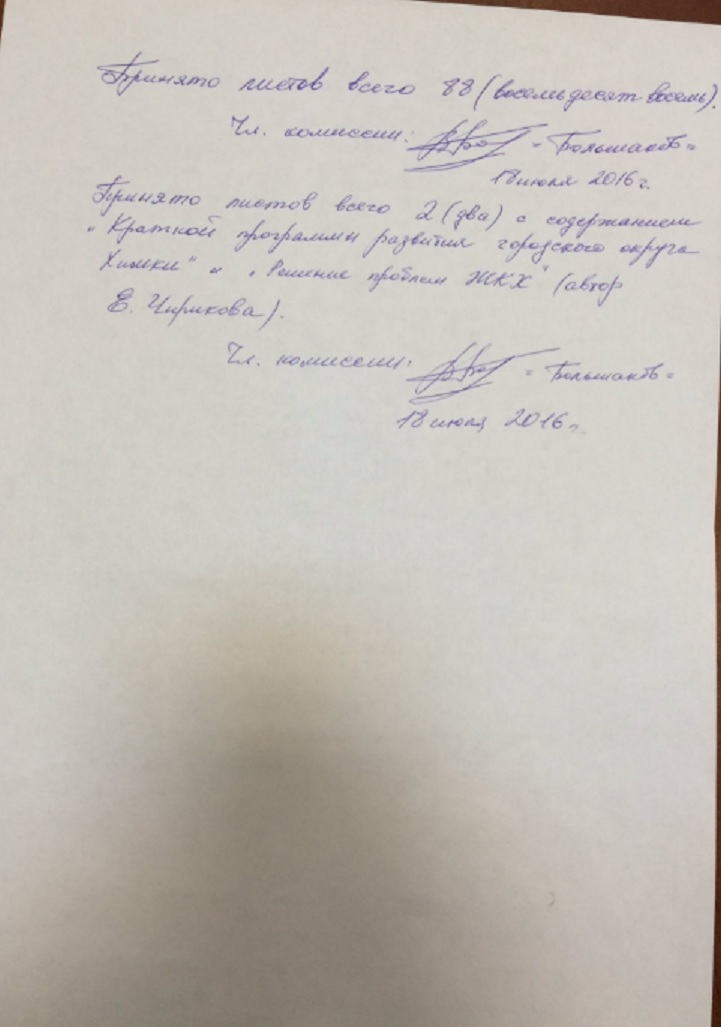 Принято листов всего 88 (восемьдесят восемь).
Чл. комиссии: =Большаков=
18 июля 2016г.
Принято листов всего 2 (два) с содержанием
„Краткой программы развития городского округа
Химки" и „Решение проблем ЖКХ" (автор
Е. Чирикова).
Чл. комиссии: =Большаков=
18 июля 2016г.